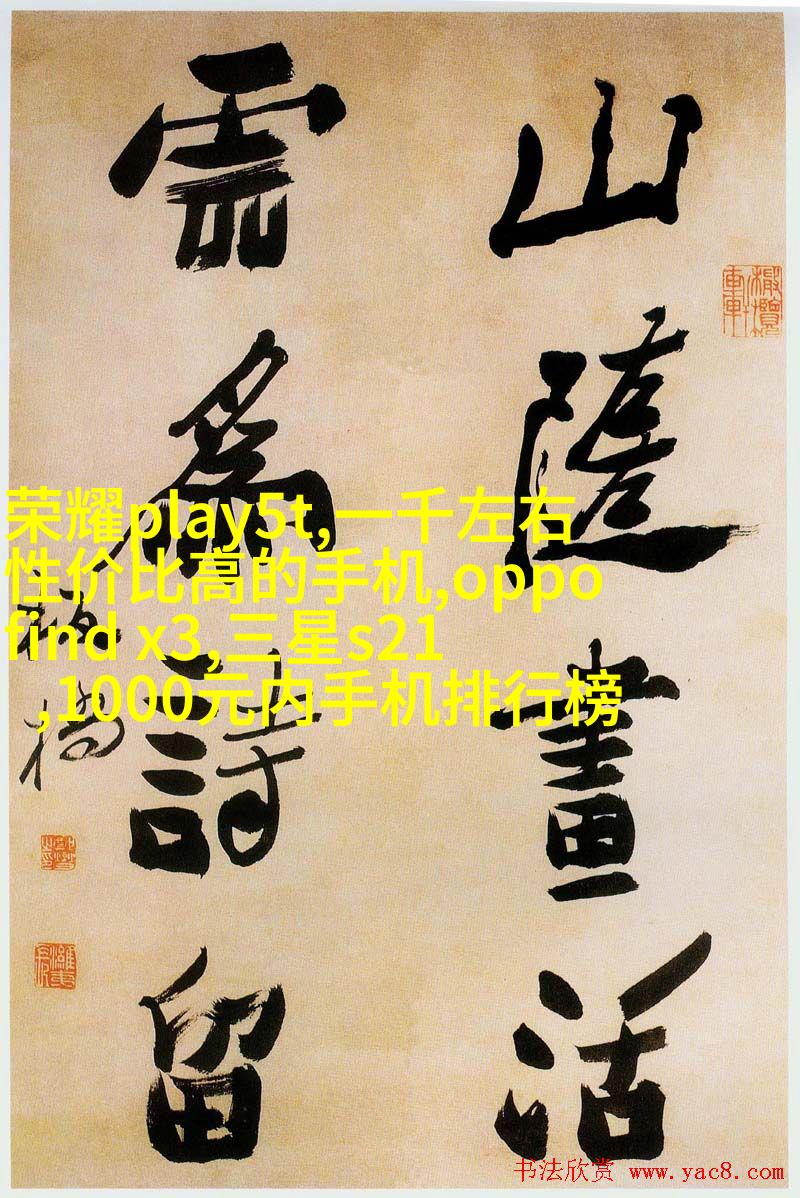 山隨畫活
雲爲詩留
板橋
荣耀play5t,一千左右
性价比高的手机,oppo
find x3,三星s21
,1000元内手机排行榜
书法欣赏 www.yac8.com